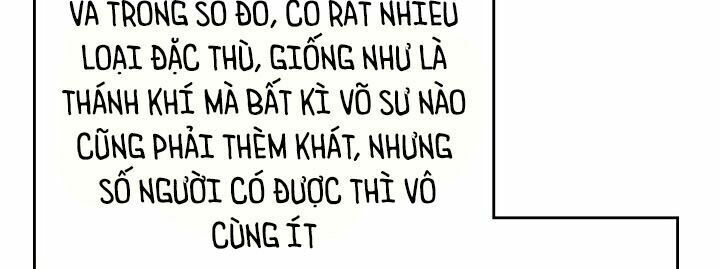 VÀ TRONG SỐ ĐÓ, CÓ RẤT NHIỀU
LOẠI ĐẶC THÙ, GIỐNG NHƯ LÀ
THÁNH KHÍ MÀ BẤT KÌ VÕ SƯ NÀO
CŨNG PHẢI THÈM KHÁT, NHƯNG
SỐ NGƯỜI CÓ ĐƯỢC THÌ VÔ
CÙNG ÍT